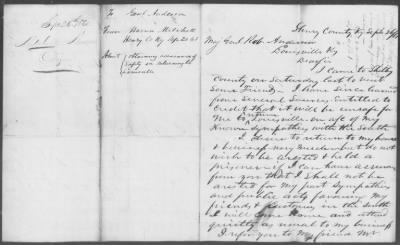 To Genl Anderson
From Warren Mitchell
Henry Co Ky Sept 26
About obtaining assurance
of safety in returning to
Louisville
Henry County Ky Sept 26/61
My Genl Robt Anderson
Louisville Ky
Dear Sir
I came to Shelby
County on Saturday last to visit
some friends. I have since learned
from several sources entitled to
credit that it will be unsafe for
me to return to Louisville on a/c of my
known sympathy with the South
I desire to return to my house
& business my muslin but do not
wish to be arrested & held a
prisoner if I can have assurance
from you that I shall not be
arrested for my past sympathies
and public acts favoring my
friends & relations in the South
I will come home and attend
quietly as usual to my business
I refer you to my friend Mr